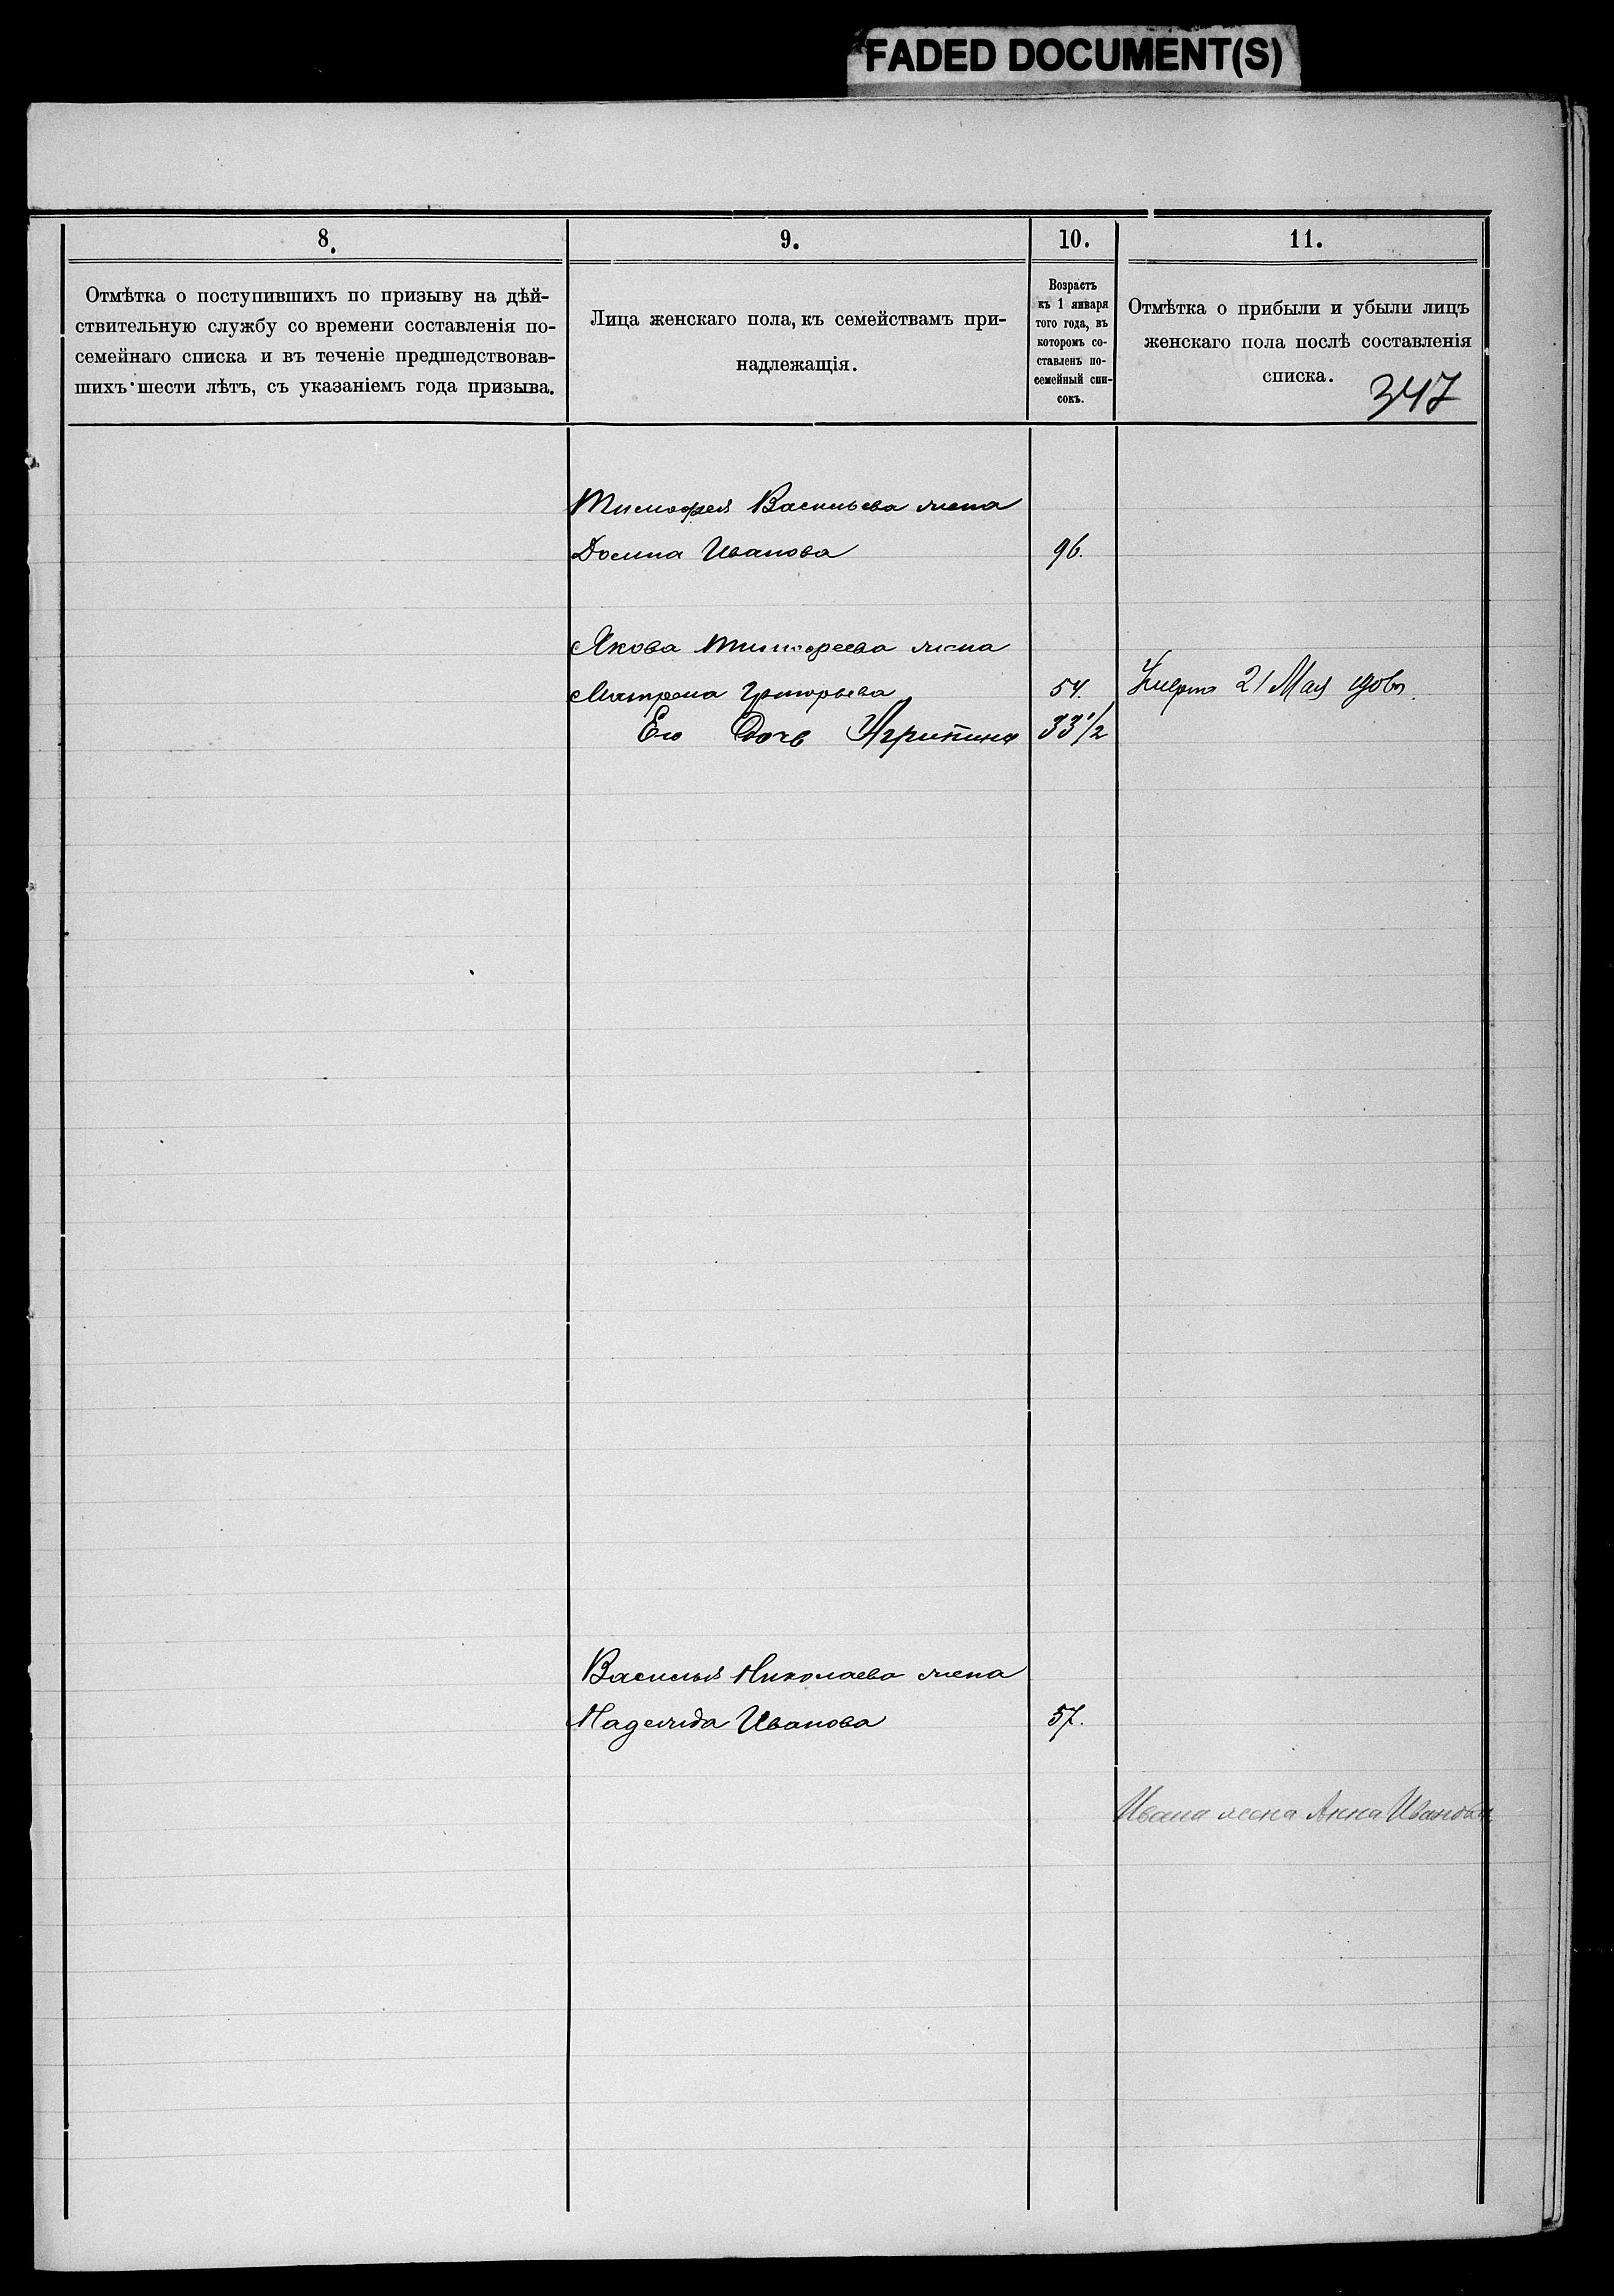 FADED DOCUMENT(S)
8.
9.
10.
11.
Отмѣтка о поступившихъ по призыву на дѣй-
ствительную службу со времени составленія по-
семейнаго списка и въ теченіе предшедствовав-
шихъ шести лѣтъ, съ указаніемъ года призыва.
Лица женскаго пола, къ семействамъ при-
надлежащія.
Возрастъ
къ 1 января
того года, въ
которомъ со-
ставленъ по-
семейный спи-
сокъ.
Отмѣтка о прибыли и убыли лицъ
женскаго пола послѣ составленія
списка.
347
Тимофея Васильева жена
Домна Иванова 96.
Якова Тимофеева жена
Матрена Григорьева 54. Умерла 21 Мая
Его Дочь Агрипина 33 1/2
Василья Николаева жена
Надежда Иванова 57.
Ивана жена Анна Иванова